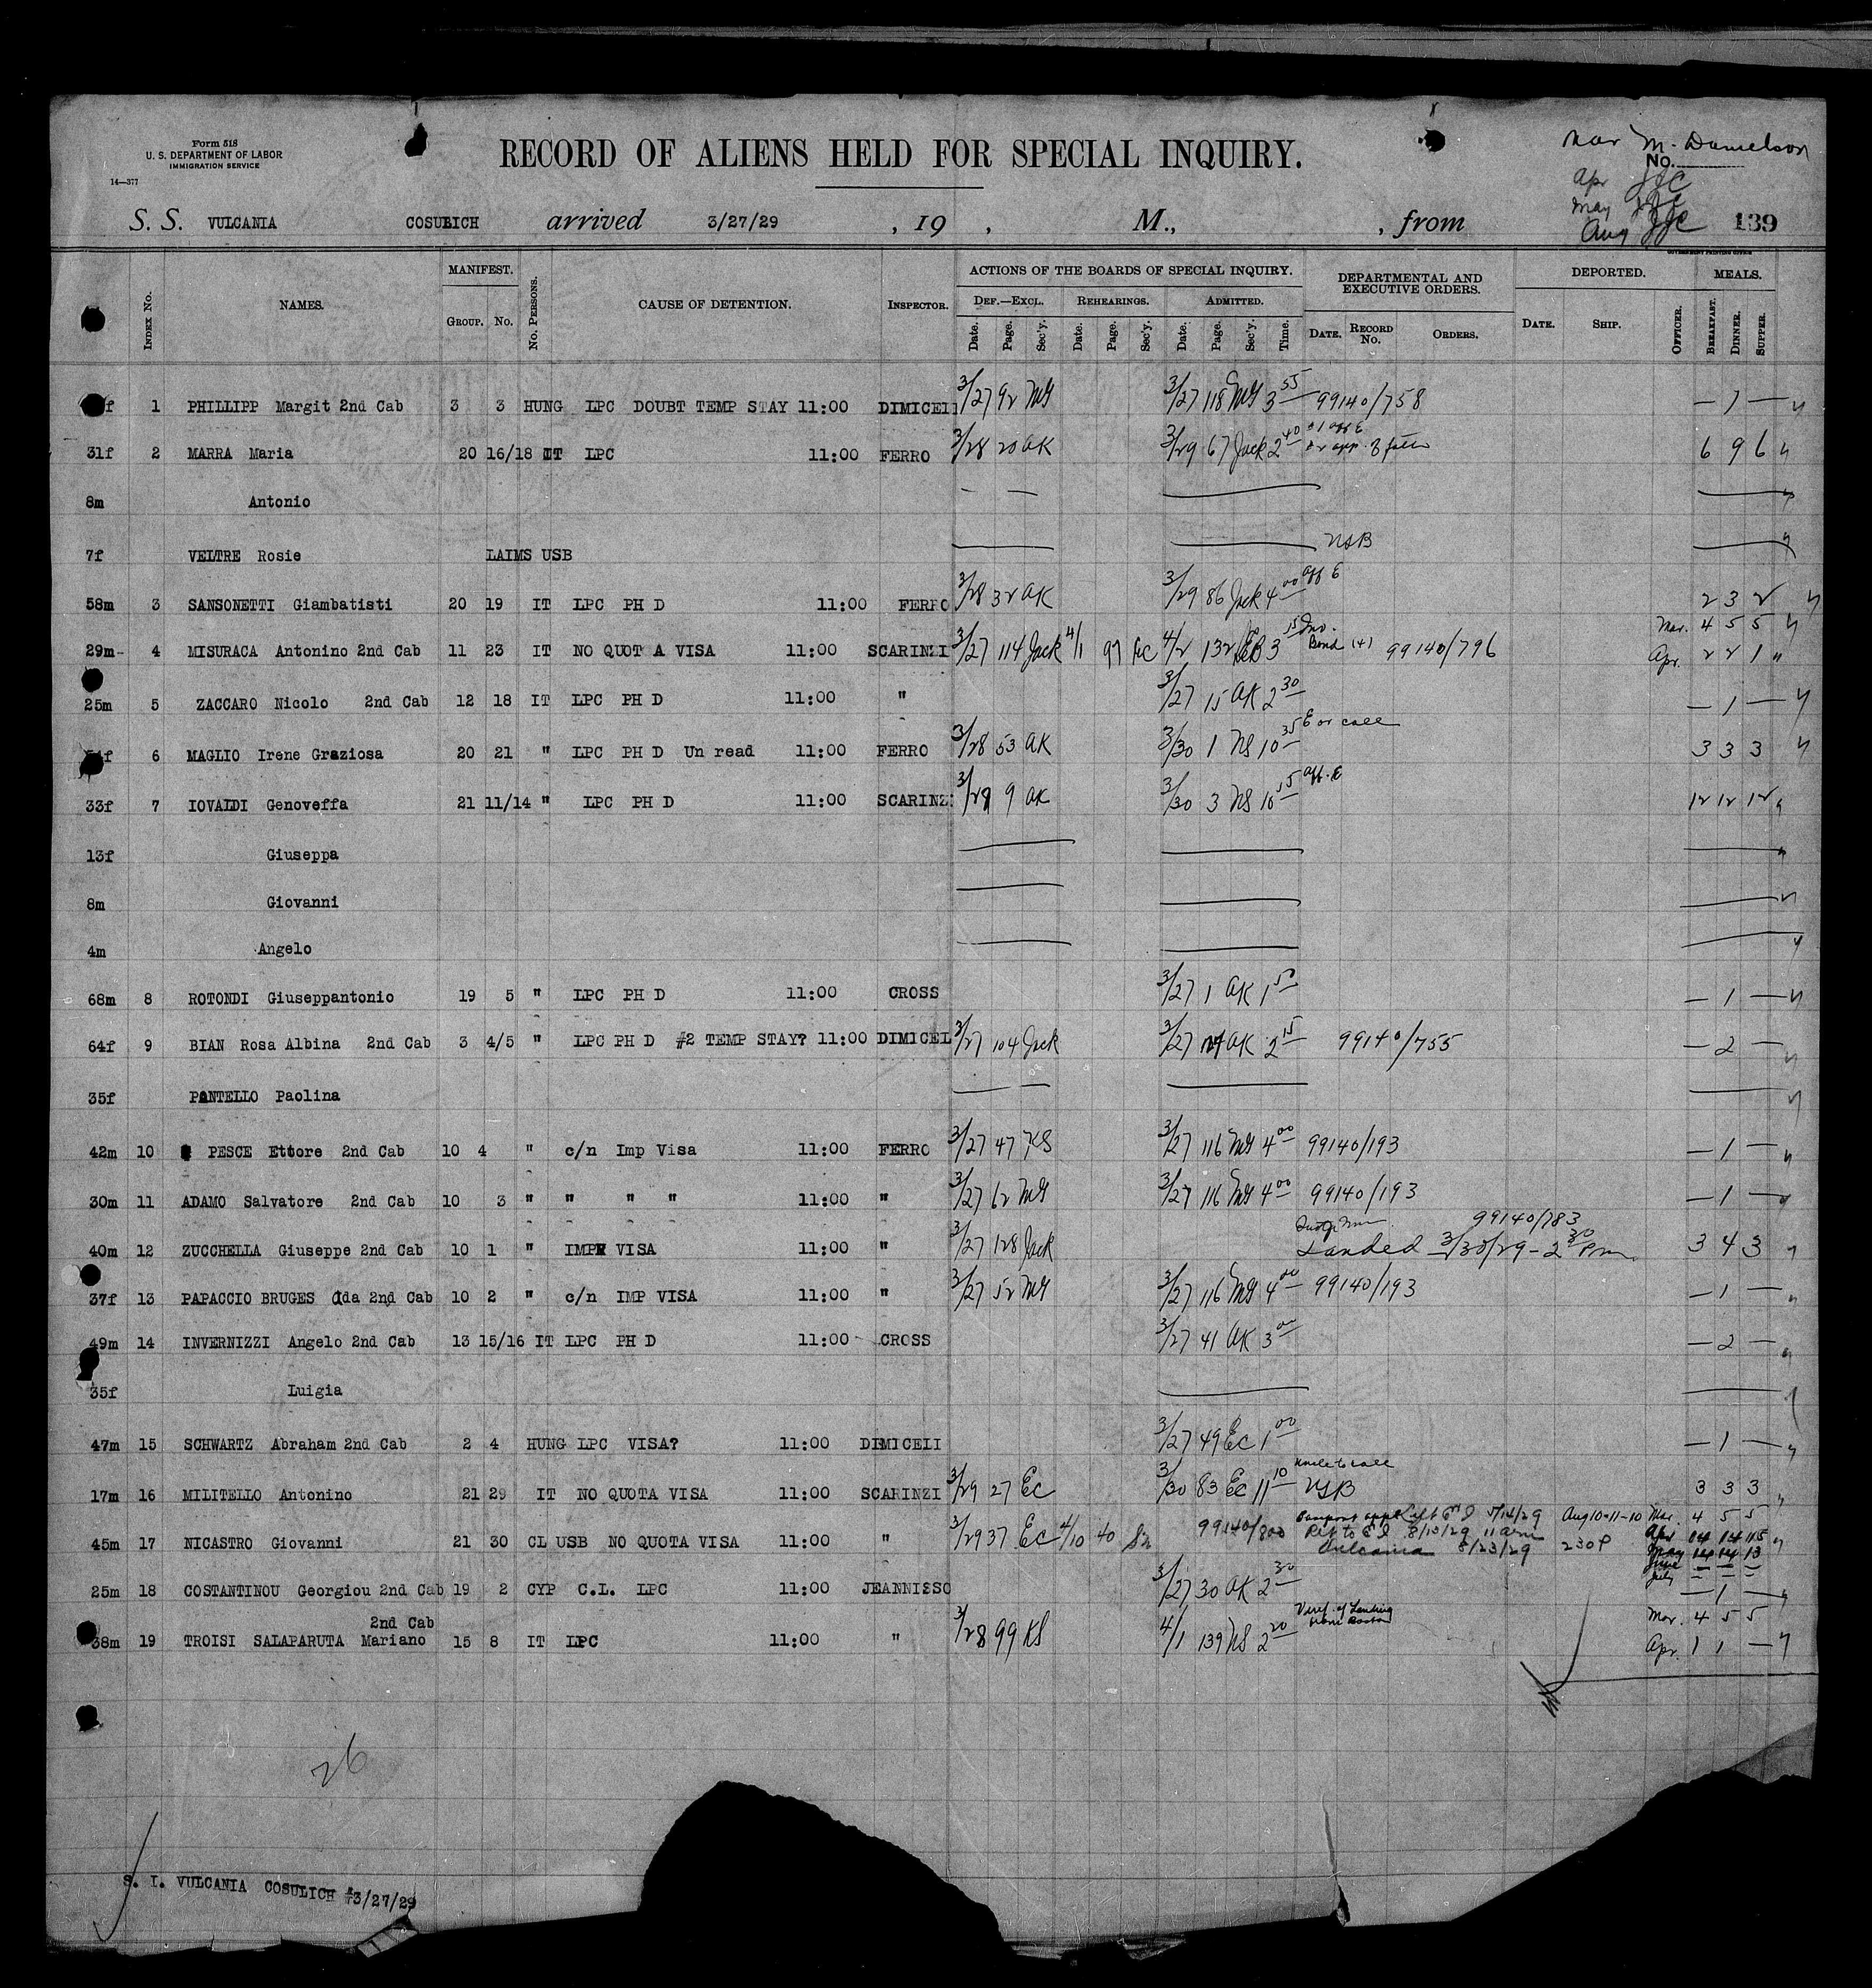 Form 518
U. S. DEPARTMENT OF LABOR
IMMIGRATION SERVICE
14—377
RECORD OF ALIENS HELD FOR SPECIAL INQUIRY.
Mar M. Danielson
No.
Apr JJC
May JJC
Aug JJC
139
S. S. VULCANIA COSULICH arrived 3/27/29 , 19 , M., , from
GOVERNMENT PRINTING OFFICE
INDEX NO. NAMES. MANIFEST. GROUP. NO. NO. PERSONS. CAUSE OF DETENTION. INSPECTOR. ACTIONS OF THE BOARDS OF SPECIAL INQUIRY. DEPARTMENTAL AND EXECUTIVE ORDERS. DEPORTED. MEALS.
DEF.—EXCL. REHEARINGS. ADMITTED.
Date. Page. Sec'y. Date. Page. Sec'y. Date. Page. Sec'y. Time. DATE. RECORD NO. ORDERS. DATE. SHIP. OFFICER. BREAKFAST. DINNER. SUPPER.
f 1 PHILLIPP Margit 2nd Cab 3 3 HUNG LPC DOUBT TEMP STAY 11:00 DIMICELI 3/27 92 MG 3/27 118 MG 3 55 99140/758 — 1 —
31f 2 MARRA Maria 20 16/18 IT LPC 11:00 FERRO 3/28 20 AK 3/29 67 Jack 2 40 6 9 6
8m Antonio
7f VELTRE Rosie LAIMS USB USB
58m 3 SANSONETTI Giambatisti 20 19 IT LPC PH D 11:00 FERRO 3/28 32 AK 3/29 86 Jack 4 00 aff E 2 3 2
29m- 4 MISURACA Antonino 2nd Cab 11 23 IT NO QUOT A VISA 11:00 SCARINZI 3/27 114 Jack 4/1 97 EC 4/2 132 EB 3 15 Bond (4) 99140/796 Mar. 4 5 5
Apr. 2 2 1 "
25m 5 ZACCARO Nicolo 2nd Cab 12 18 IT LPC PH D 11:00 " 3/27 15 AK 2 30 — 1 —
f 6 MAGLIO Irene Graziosa 20 21 " LPC PH D Un read 11:00 FERRO 3/28 53 AK 3/30 1 NS 10 35 E or call 3 3 3
33f 7 IOVALDI Genoveffa 21 11/14 " LPC PH D 11:00 SCARINZI 3/29 9 AK 3/30 3 NS 10 55 aff. E 12 12 12
13f Giuseppa
8m Giovanni
4m Angelo
68m 8 ROTONDI Giuseppantonio 19 5 " LPC PH D 11:00 CROSS 3/27 1 AK 1 50 — 1 —
64f 9 BIAN Rosa Albina 2nd Cab 3 4/5 " LPC PH D #2 TEMP STAY? 11:00 DIMICEL 3/27 104 Jack 3/27 AK 2 15 99140/755 — 2 —
35f PANTELLO Paolina
42m 10 PESCE Ettore 2nd Cab 10 4 " c/n Imp Visa 11:00 FERRO 3/27 47 KS 3/27 116 MG 4 00 99140/193 — 1 —
30m 11 ADAMO Salvatore 2nd Cab 10 3 " " " " 11:00 " 3/27 62 MG 3/27 116 MG 4 00 99140/193 — 1 —
99140/783
40m 12 ZUCCHELLA Giuseppe 2nd Cab 10 1 " IMP VISA 11:00 " 3/27 128 Jack Landed 3/30/29 - 2 30 Pm 3 4 3
37f 13 PAPACCIO BRUGES Ida 2nd Cab 10 2 " c/n IMP VISA 11:00 " 3/27 52 MG 3/27 116 MG 4 00 99140/193 — 1 —
49m 14 INVERNIZZI Angelo 2nd Cab 13 15/16 IT LPC PH D 11:00 CROSS 3/27 41 AK 3 00 — 2 —
35f Luigia
47m 15 SCHWARTZ Abraham 2nd Cab 2 4 HUNG LPC VISA? 11:00 DIMICELI 3/27 49 EC 1 00 — 1 —
17m 16 MILITELLO Antonino 21 29 IT NO QUOTA VISA 11:00 SCARINZI 3/29 27 EC 3/30 83 EC 11 10 Uncle to call USB 3 3 3
45m 17 NICASTRO Giovanni 21 30 CL USB NO QUOTA VISA 11:00 " 3/29 37 EC 4/10 40 99140/800 Left E I 5/14/29 Aug 10-11-10 Mar. 4 5 5
Ret to E I 8/10/29 11 am Apr 14 14 15
Vulcania 8/23/29 230 P May 14 14 13
June — — —
July — — —
25m 18 COSTANTINOU Georgiou 2nd Cab 19 2 CYP C.L. LPC 11:00 JEANNISSO 3/27 30 AK 2 30 — 1 —
2nd Cab
38m 19 TROISI SALAPARUTA Mariano 15 8 IT LPC 11:00 " 3/28 99 KS 4/1 139 NS 2 20 Verif. of Landing from Boston Mar. 4 5 5
Apr. 1 1 —
26
S. I. VULCANIA COSULICH 3/27/29